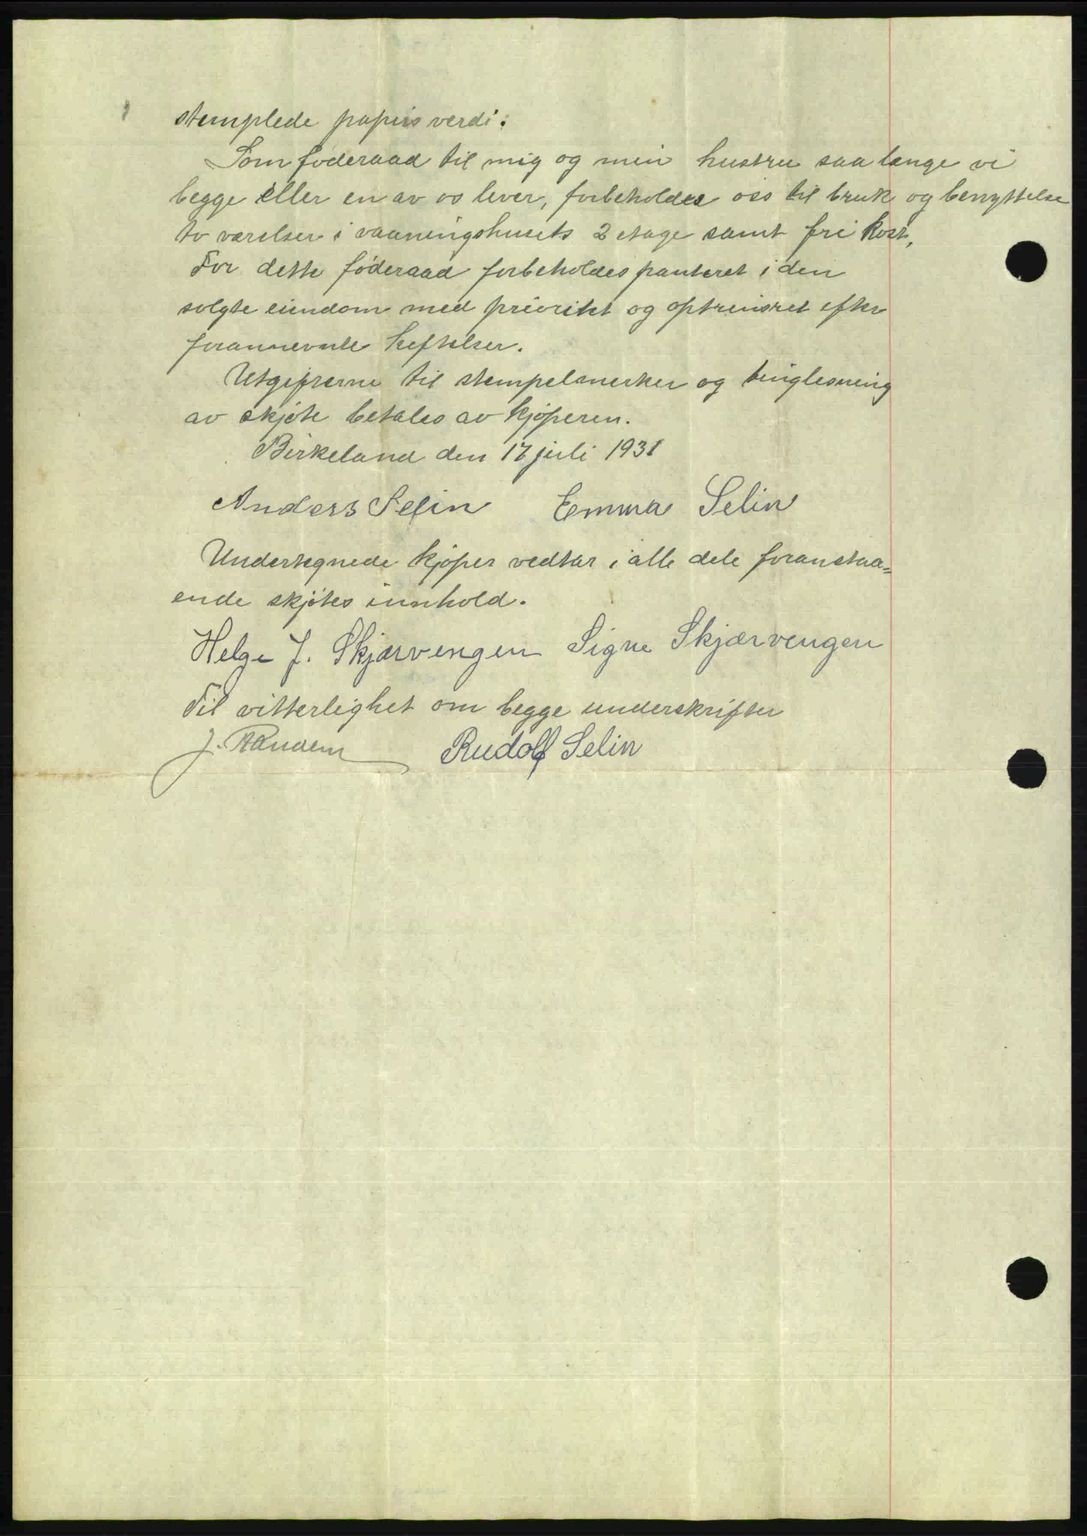 stemplede papirs verdi.
Som føderaad til mig og min hustru saa lenge vi
begge eller en av os lever, forbeholdes oss til bruk og benyttelse
to værelser i vaaningshusets 2 etage samt fri kost,
For dette føderaad forbeholdes panteret i den
solgte eiendom med prioritet og optrinsret efter
forannevnte heftelser.
Utgifterne til stempelmerker og tinglesning
av skjøte betales av kjøperen.
Birkeland den 17 juli 1931
Anders Selin Emma Selin
Undertegnede kjøper vedtar i alle dele foranstaa=
ende skjøtes innhold.
Helge J. Skjærvengen Signe Skjærvengen
Til vitterlighet om begge underskrifter
J. Rudolf Selin